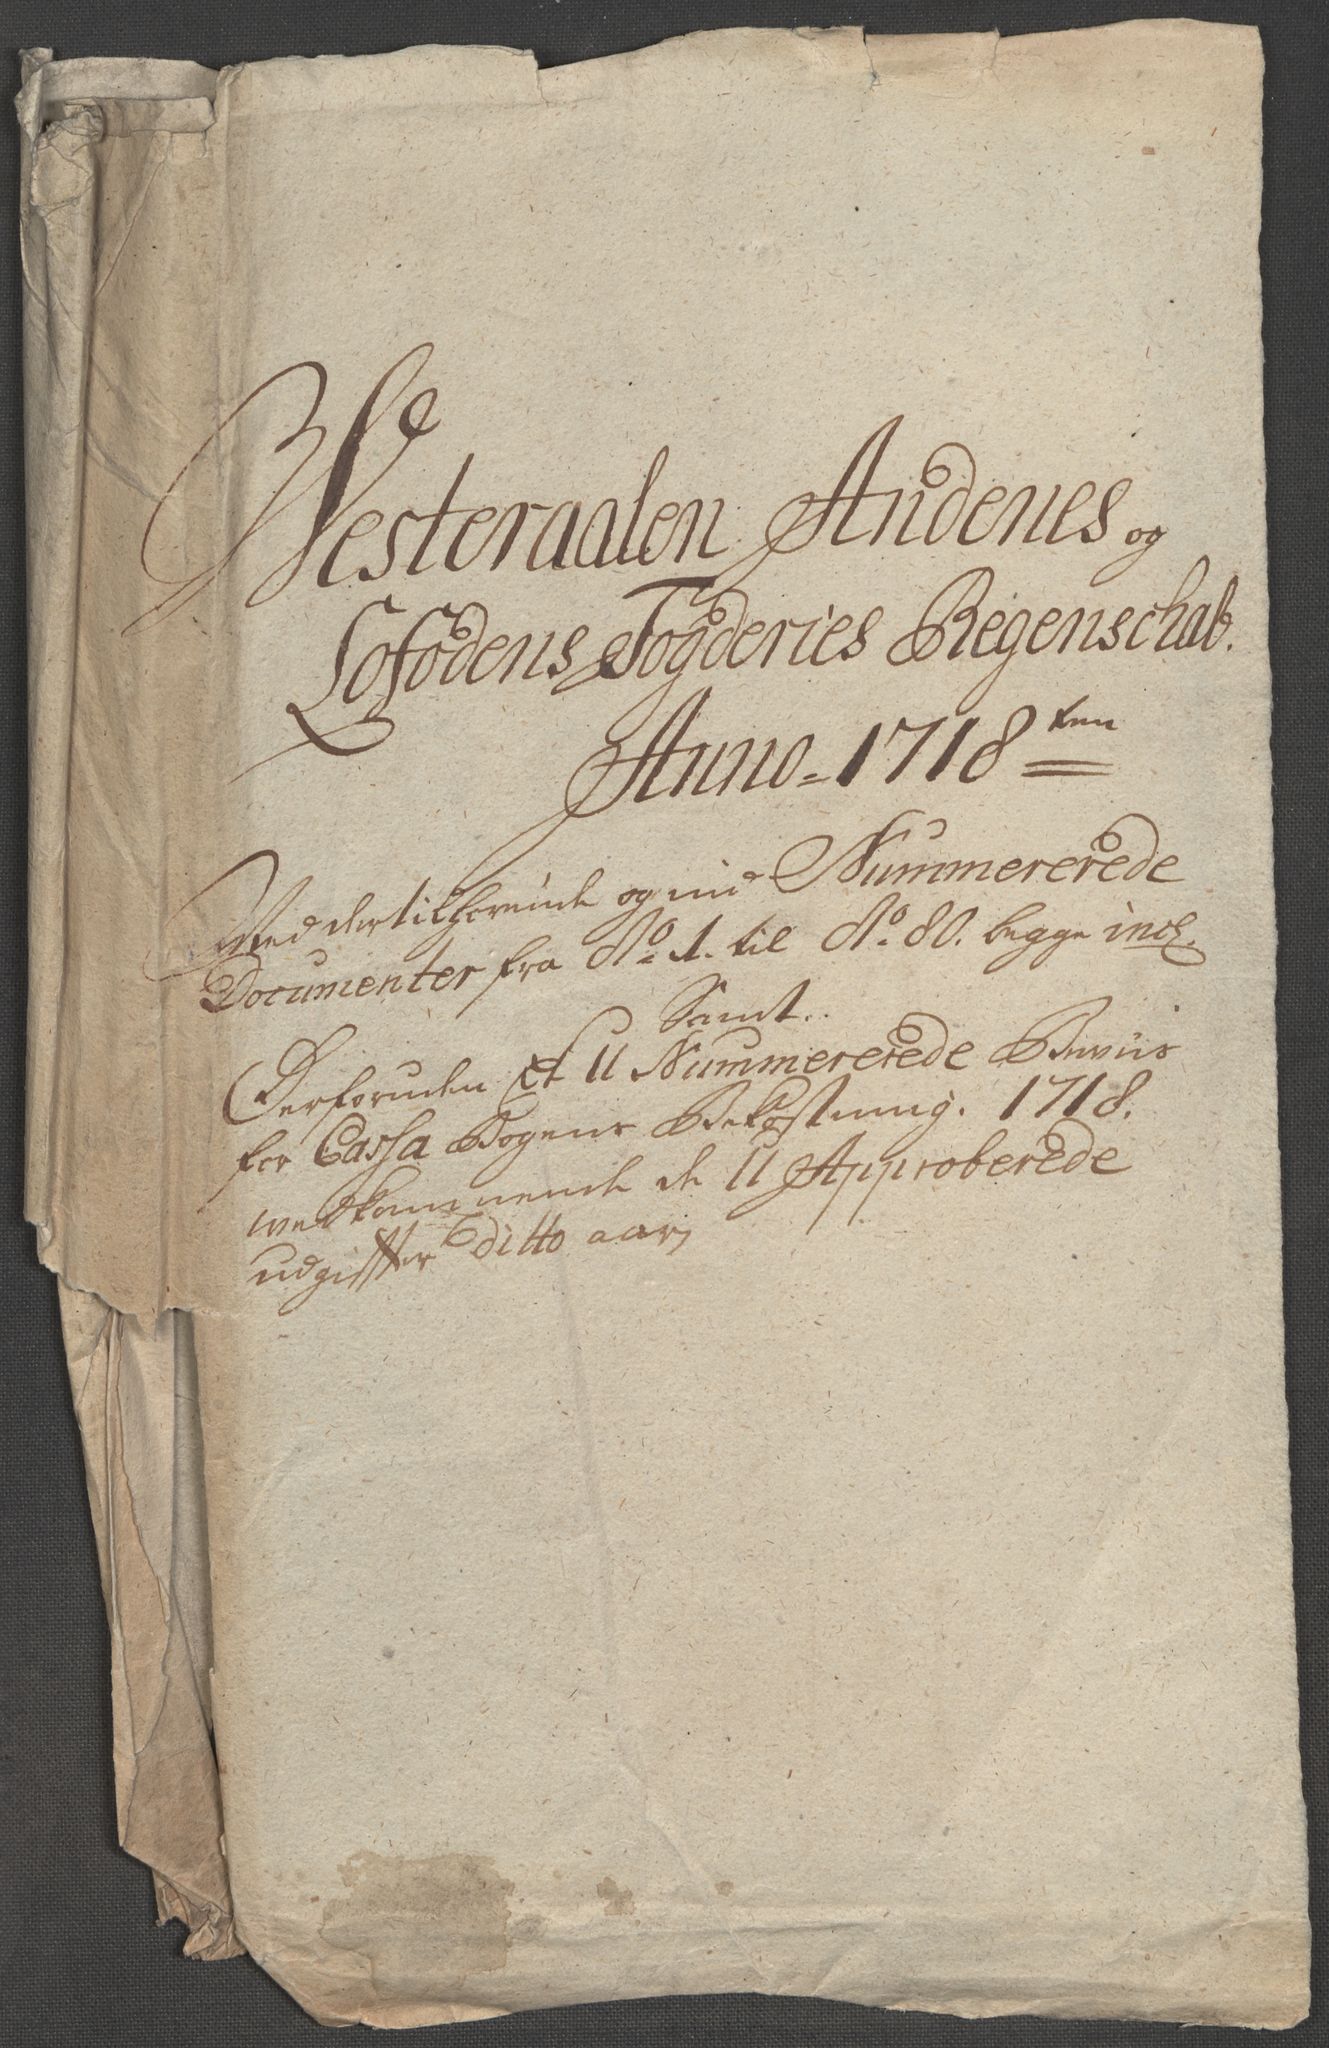 Westeraalen Andenes og
Lofodens Fogderies Regenschab.
Anno = 1718 ten
Med dertilhørende og med Nummererede
Documenter fra No 1. til No 80. begge incl.
Samt.
Derforuden Et U Nummererede Beviis
for Cassa Bogens Bekostning. 1718.
vedkommende de U Approberede
udgiffter ditto aar